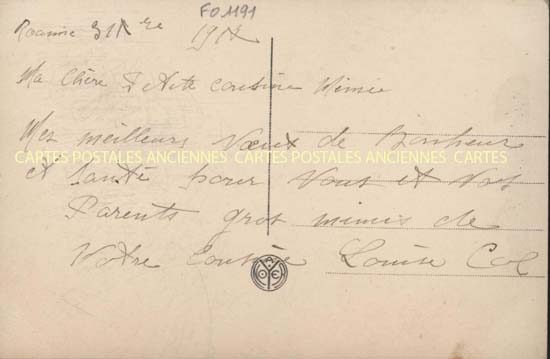 FO1191
Roanne 31 Xbre 1912
Ma Chère Petite cousine Mimie
Mes meilleurs Voeux de Bonheur
CARTES POSTALES ANCIENNES CARTES POSTALES ANCIENNES CARTES
et Santé pour Vous et Vos
Parents gros mimis de
Votre Cousine Louise Col